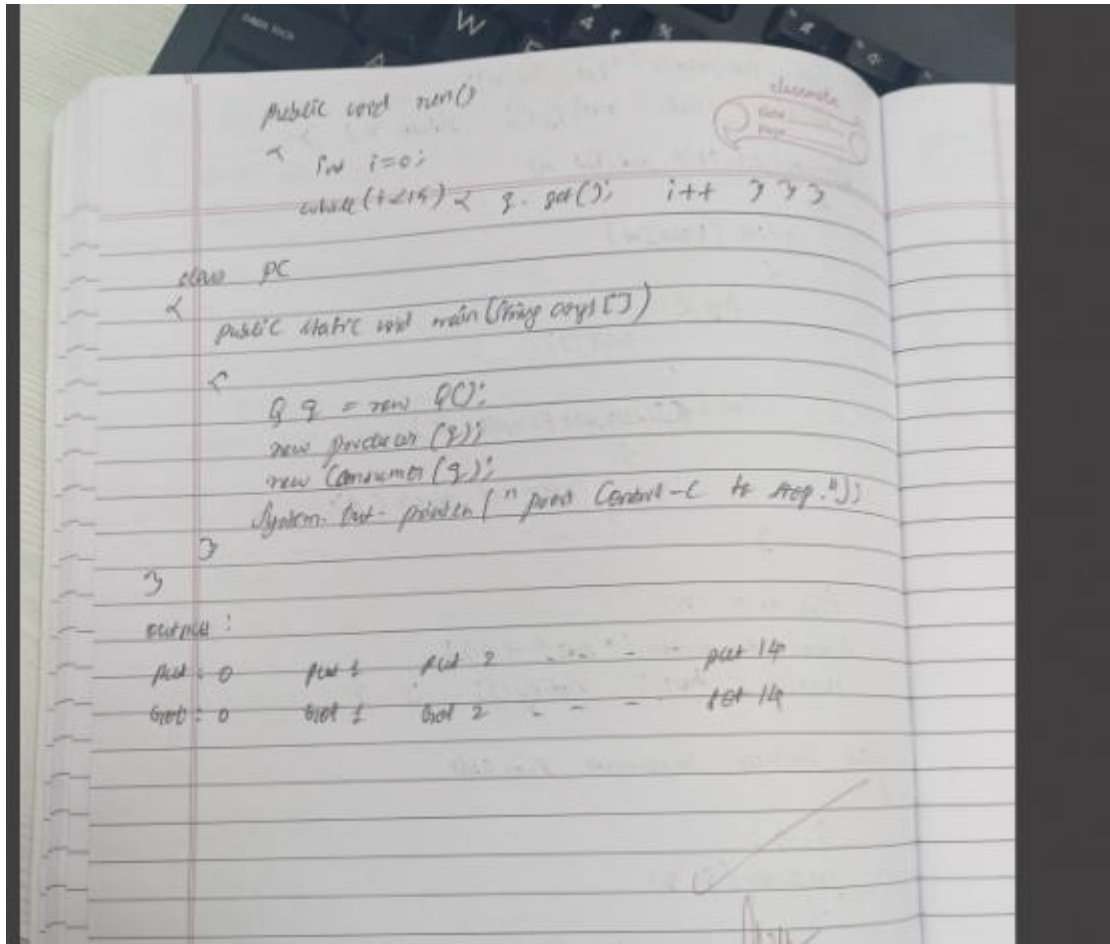 classmate
Date
Page
public void run()
{ int i=0;
while(i<15) { q.get(); i++ } } }
class PC
{
public static void main(String args[])
{
Q q = new Q();
new Producer(q);
new Consumer(q);
System.out.println("press Control-C to stop.");
}
}
output:
put: 0 put 1 put 2 - - - - put 14
Got: 0 Got 1 Got 2 - - - - Got 14